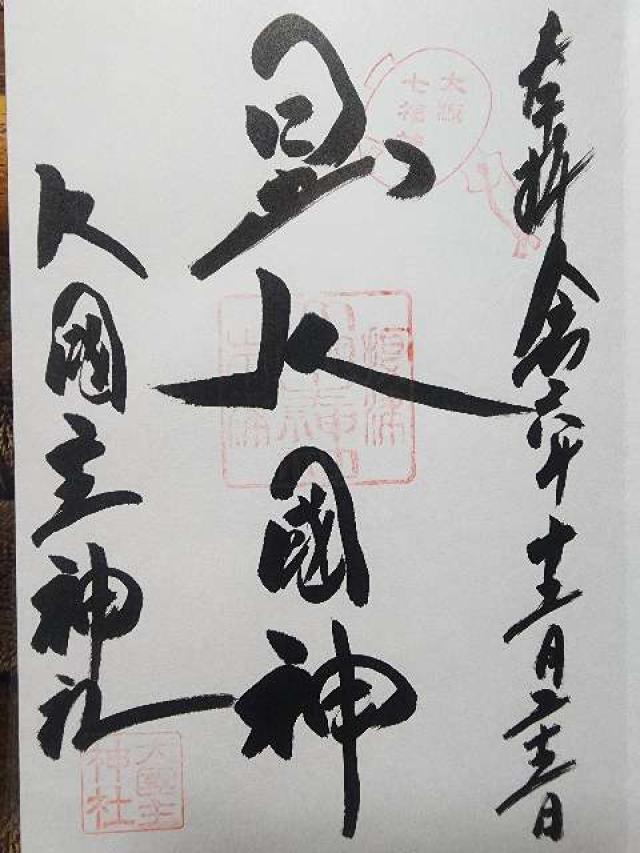 奉拝 令和六年十二月二十二日
大阪
七福神
日出大國神
大國主神社
大國主
神社